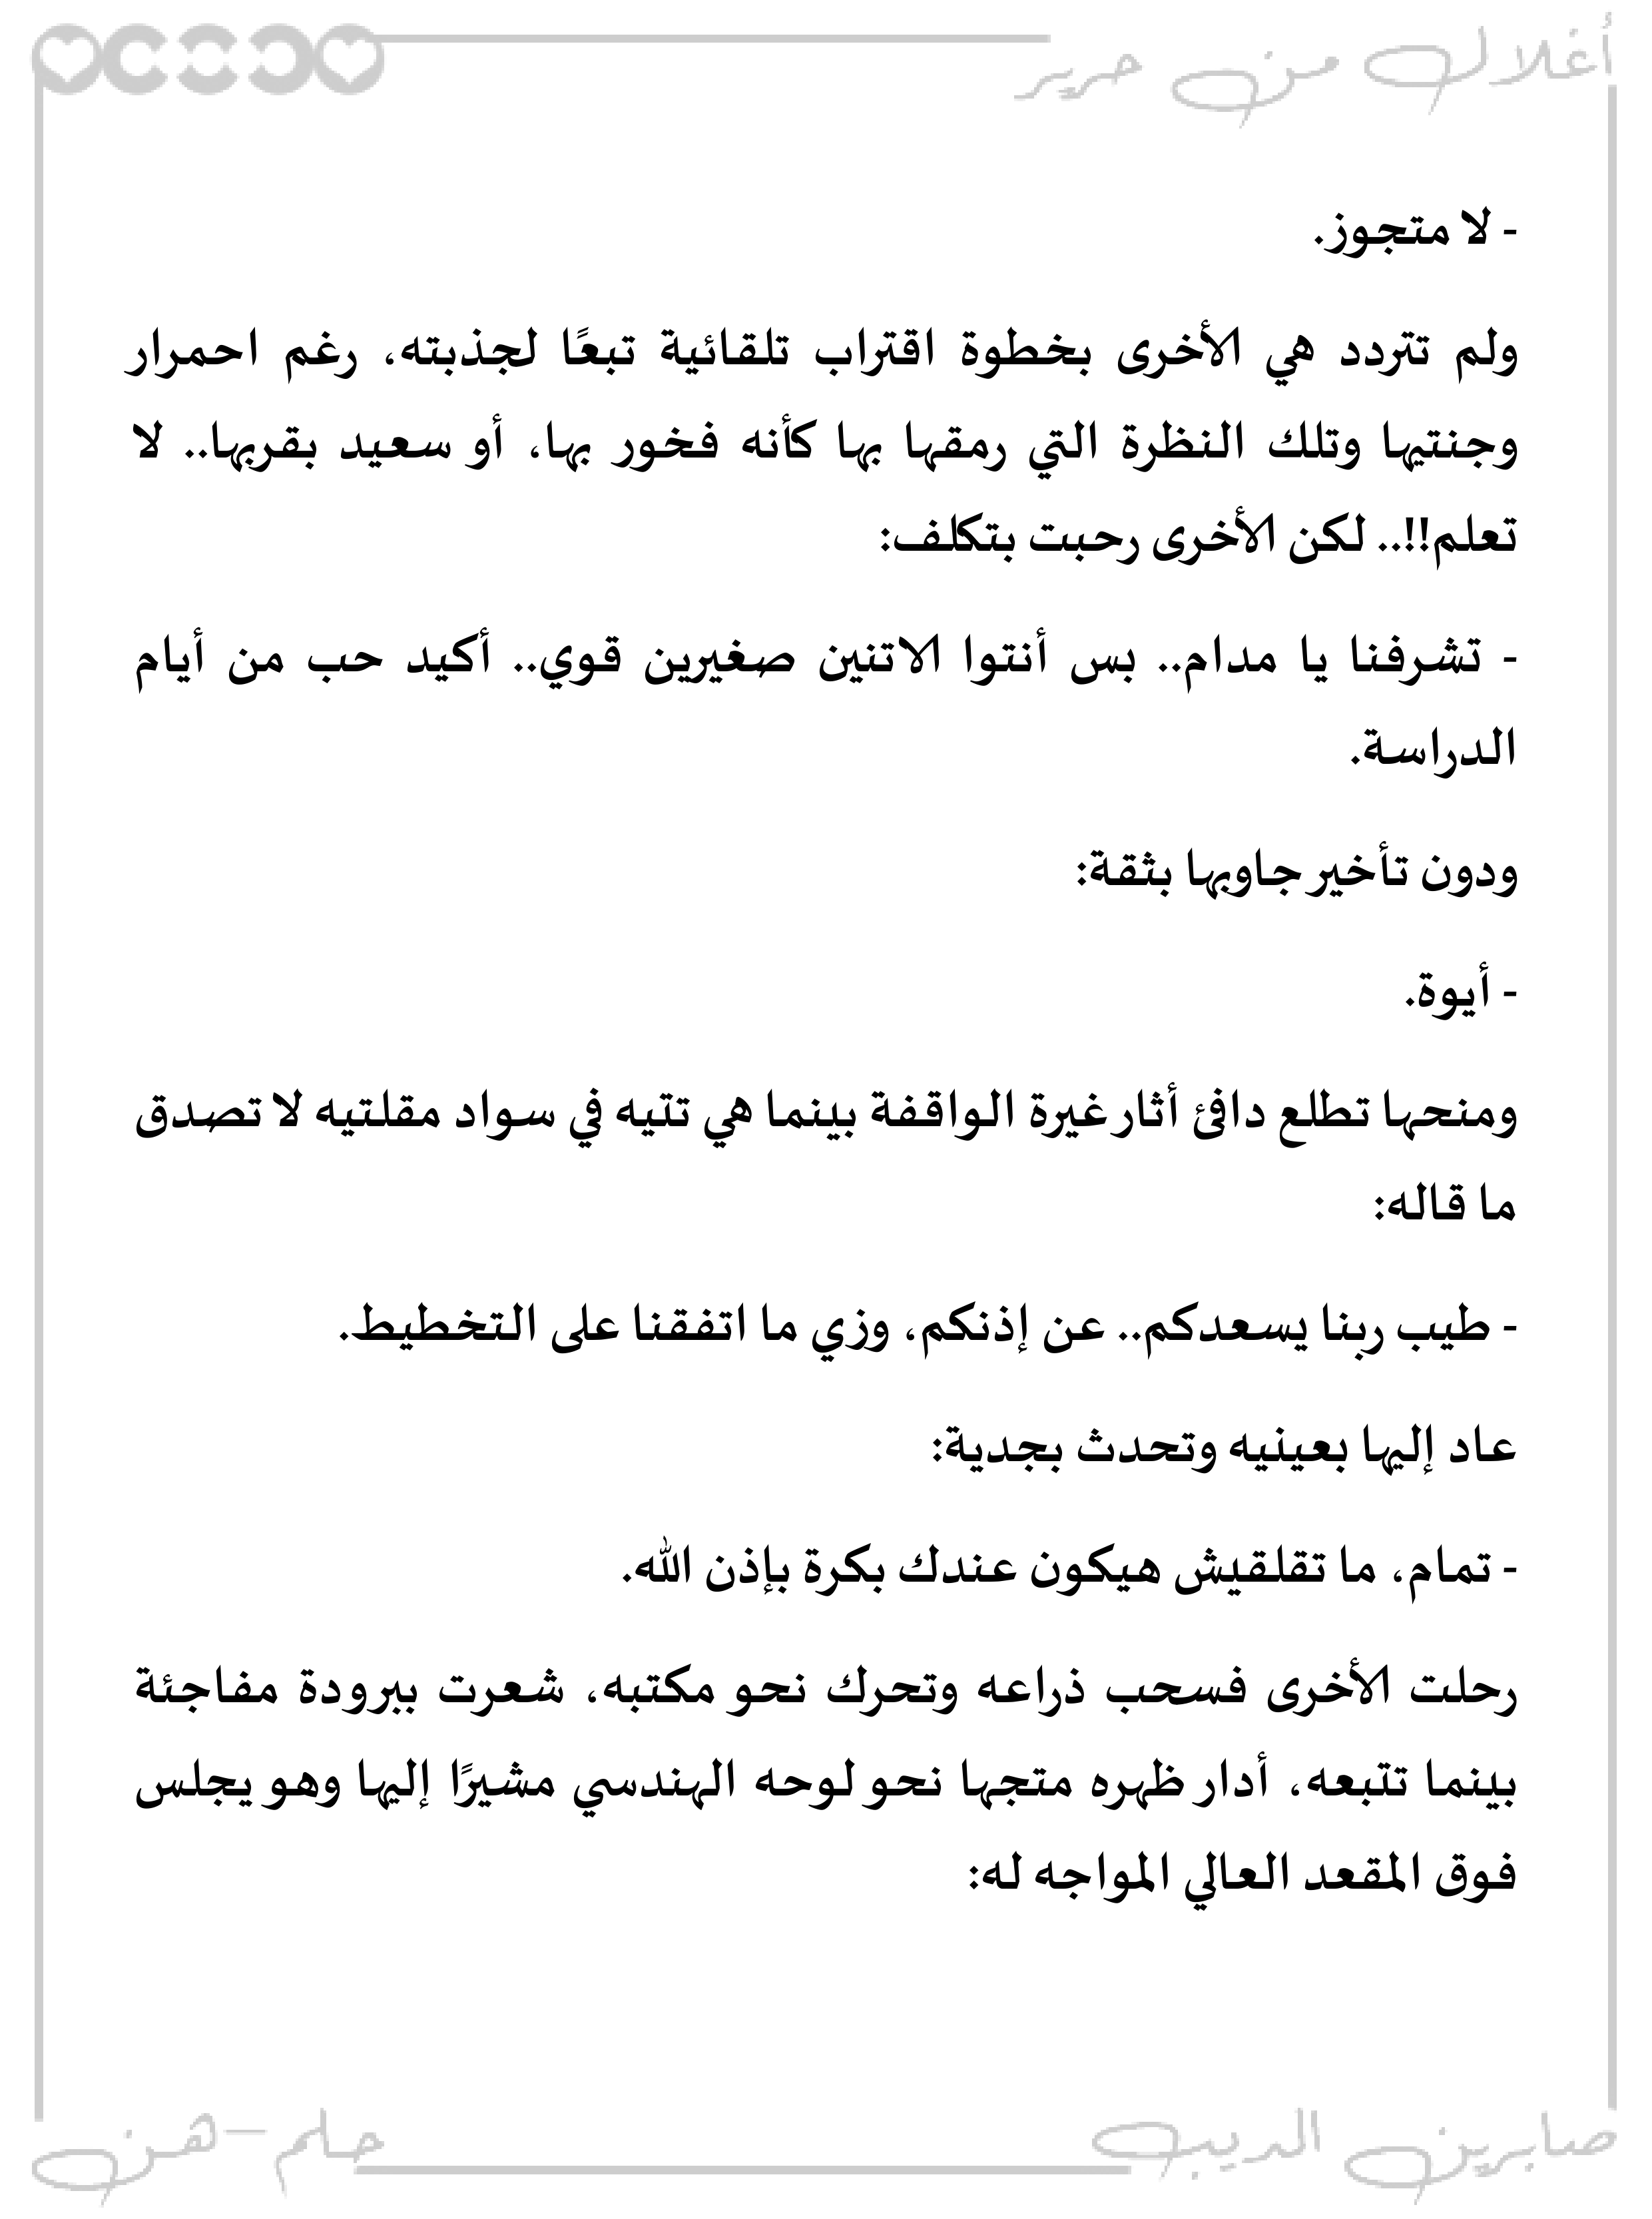 أغلال من حرير
- لا متجوز.
ولم تتردد هي الأخرى بخطوة اقتراب تلقائية تبعًا لجذبته، رغم احمرار
وجنتيها وتلك النظرة التي رمقها بها كأنه فخور بها، أو سعيد بقربها.. لا
تعلم!!.. لكن الأخرى رحبت بتكلف:
- تشرفنا يا مدام.. بس أنتوا الاتنين صغيرين قوي.. أكيد حب من أيام
الدراسة.
ودون تأخير جاوبها بثقة:
- أيوة.
ومنحها تطلع دافئ أثار غيرة الواقفة بينما هي تتيه في سواد مقلتيه لا تصدق
ما قاله:
- طيب ربنا يسعدكم.. عن إذنكم، وزي ما اتفقنا على التخطيط.
عاد إليها بعينيه وتحدث بجدية:
- تمام، ما تقلقيش هيكون عندك بكرة بإذن الله.
رحلت الأخرى فسحب ذراعه وتحرك نحو مكتبه، شعرت ببرودة مفاجئة
بينما تتبعه، أدار ظهره متجها نحو لوحه الهندسي مشيرًا إليها وهو يجلس
فوق المقعد العالي المواجه له:
صابرين الديب
حلم-هن